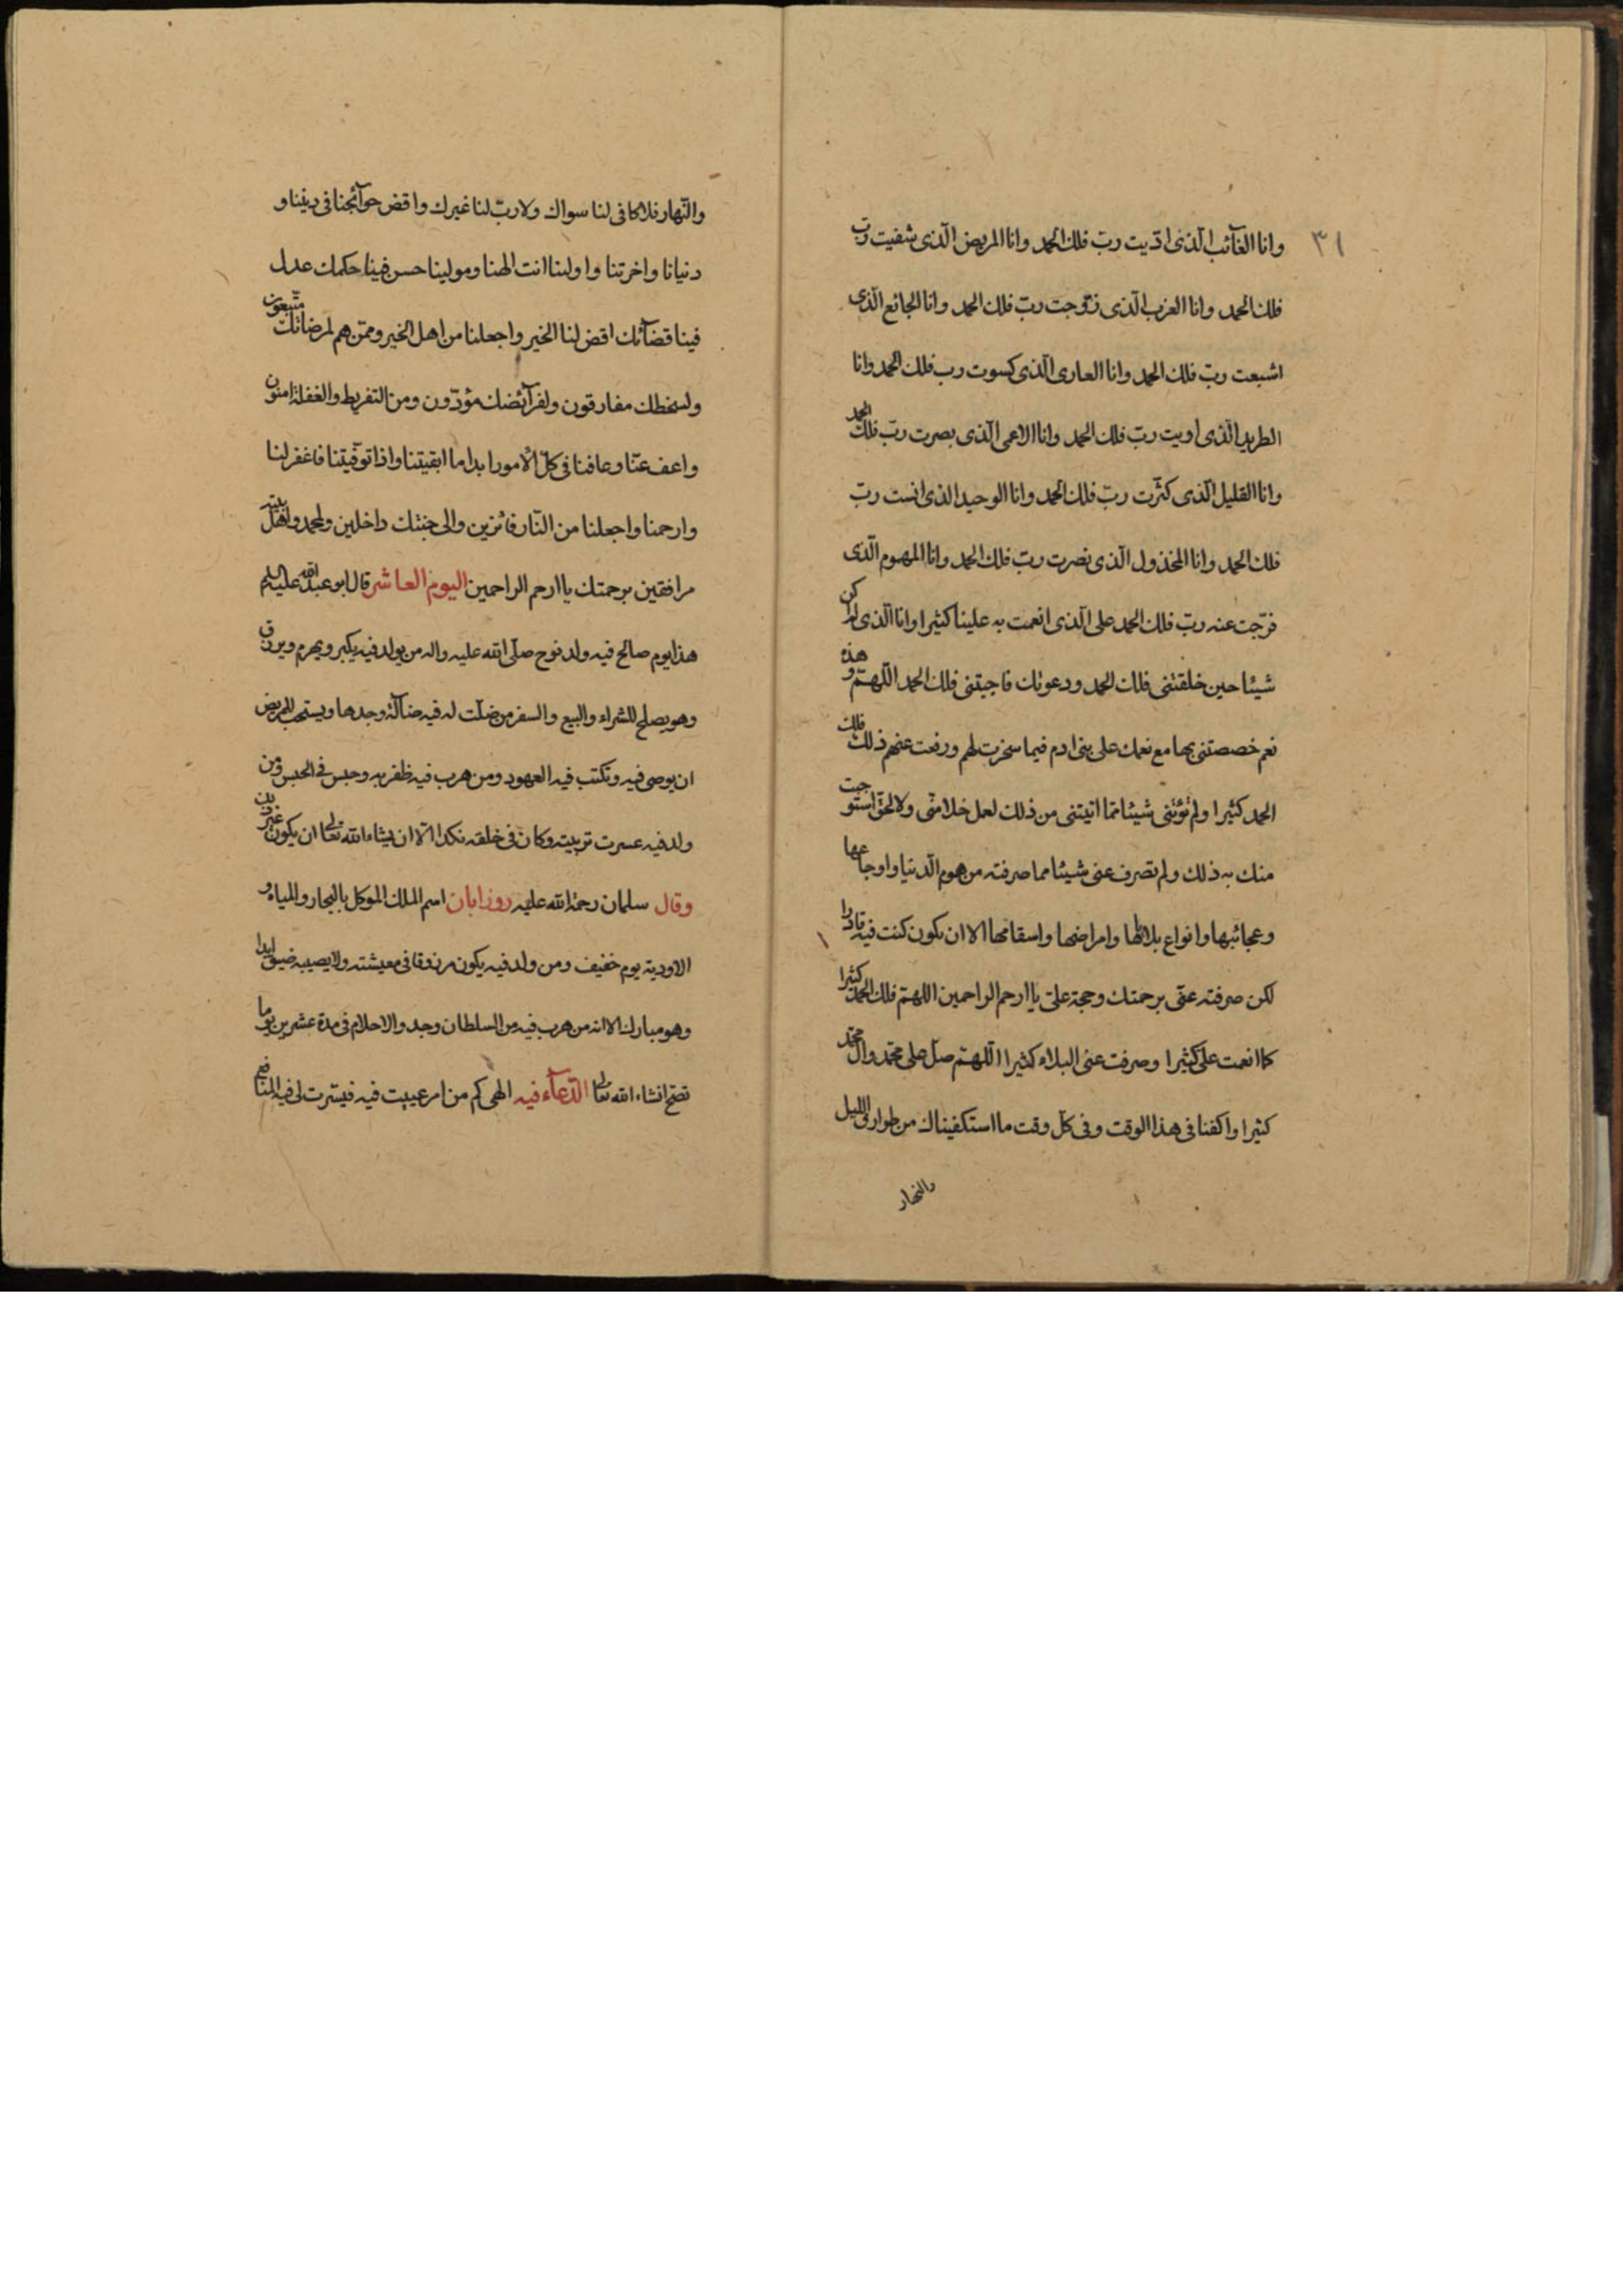 ٣١
وانا الغآئب الّذى ادّيت ربّ فلك الحمد وانا المريض الّذى شفيت ربّ
فلك الحمد وانا العزب الّذى زوّجت ربّ فلك الحمد وانا الجائع الّذى
اشبعت ربّ فلك الحمد وانا العارى الّذى كسوت رب فلك الحمد وانا
الطريد الّذى اويت ربّ فلك الحمد وانا الاعمى الّذى بصرت ربّ فلك الحمد
وانا القليل الّذى كثّرت ربّ فلك الحمد وانا الوحيد الذى انست ربّ
فلك الحمد وانا المخذول الّذى نصرت ربّ فلك الحمد وانا المهموم الّذى
فرّجت عنه ربّ فلك الحمد على الّذى انعمت به علينا كثيرا وانا الّذى لم اكن
شيئا حين خلقتنى فلك الحمد ودعوتك فاجبتنى فلك الحمد اللّهمّ وهذه
نعم خصصتنى بها مع نعمك على بنى ادم فيما سخرت لهم ورفعت عنهم ذلك فلك
الحمد كثيرا ولم تؤتنى شيئا ممّا اتيتنى من ذلك لعمل خلا منّى ولا لحقّ استوجبت
منك به ذلك ولم تصرف عنى شيئا مما صرفته من هموم الّدنيا واوجاعها
وعجائبها وانواع بلائها وامراضها واسقامها الا ان يكون كنت فيه قادرا
لكن صرفته عنّى برحمتك وحجة علىّ يا ارحم الراحمين اللهمّ فلك الحمد كثيرا
كما انعمت علىّ كثيرا وصرفت عنى البلاء كثيرا اللّهمّ صلّ على محمّد وال محمّد
كثيرا واكفنا فى هذا الوقت وفى كلّ وقت ما استكفيناك من طوارق الليل
والنهار
والنّهار فلا كافى لنا سواك ولا ربّ لنا غيرك واقض حوآئجنا فى ديننا و
دنيانا واخرتنا واولنا انت الهنا ومولينا حسن فينا حكمك عدل
فينا قضآئك اقض لنا الخير واجعلنا من اهل الخير وممّن هم لمرضاتك متّبعون
ولسخطك مفارقون ولفرآئضك مؤدّون ومن التفريط والغفلة امنون
واعف عنّا وعافنا فى كلّ الامور ابدا ما ابقيتنا واذا توفّيتنا فاغفر لنا
وارحمنا واجعلنا من النّار فائزين والى جنتك داخلين ولمحمد واهل بيته
مرافقين برحمتك يا ارحم الراحمين اليوم العاشر قال ابو عبد الله عليه السلم
هذا يوم صالح فيه ولد نوح صلّى الله عليه واله من يولد فيه يكبر ويهرم ويرزق
وهو يصلح للشراء والبيع والسفر من ضلّت له فيه ضآلة وجدها ويستحب للمريض
ان يوصى فيه وتكتب فيه العهود ومن هرب فيه ظفر به وحبس فى الحبس ومن
ولد فيه عسرت تربيته وكان فى خلقه نكد الّا ان يشاء الله تعالى ان يكون غير ذلك
وقال سلمان رحمة الله عليه روز ابان اسم الملك الموكل بالبحار والمياه و
الاودية يوم خفيف ومن ولد فيه يكون مرزوقا فى معيشته ولا يصيبه ضيق ابدا
وهو مبارك الا انه من هرب فيه من السلطان وجد والاحلام فى مدة عشرين يوما
تصحّ انشاء الله تعالى الدّعآء فيه الهى كم من امر عييت فيه فيسّرت لى فيه المنافع